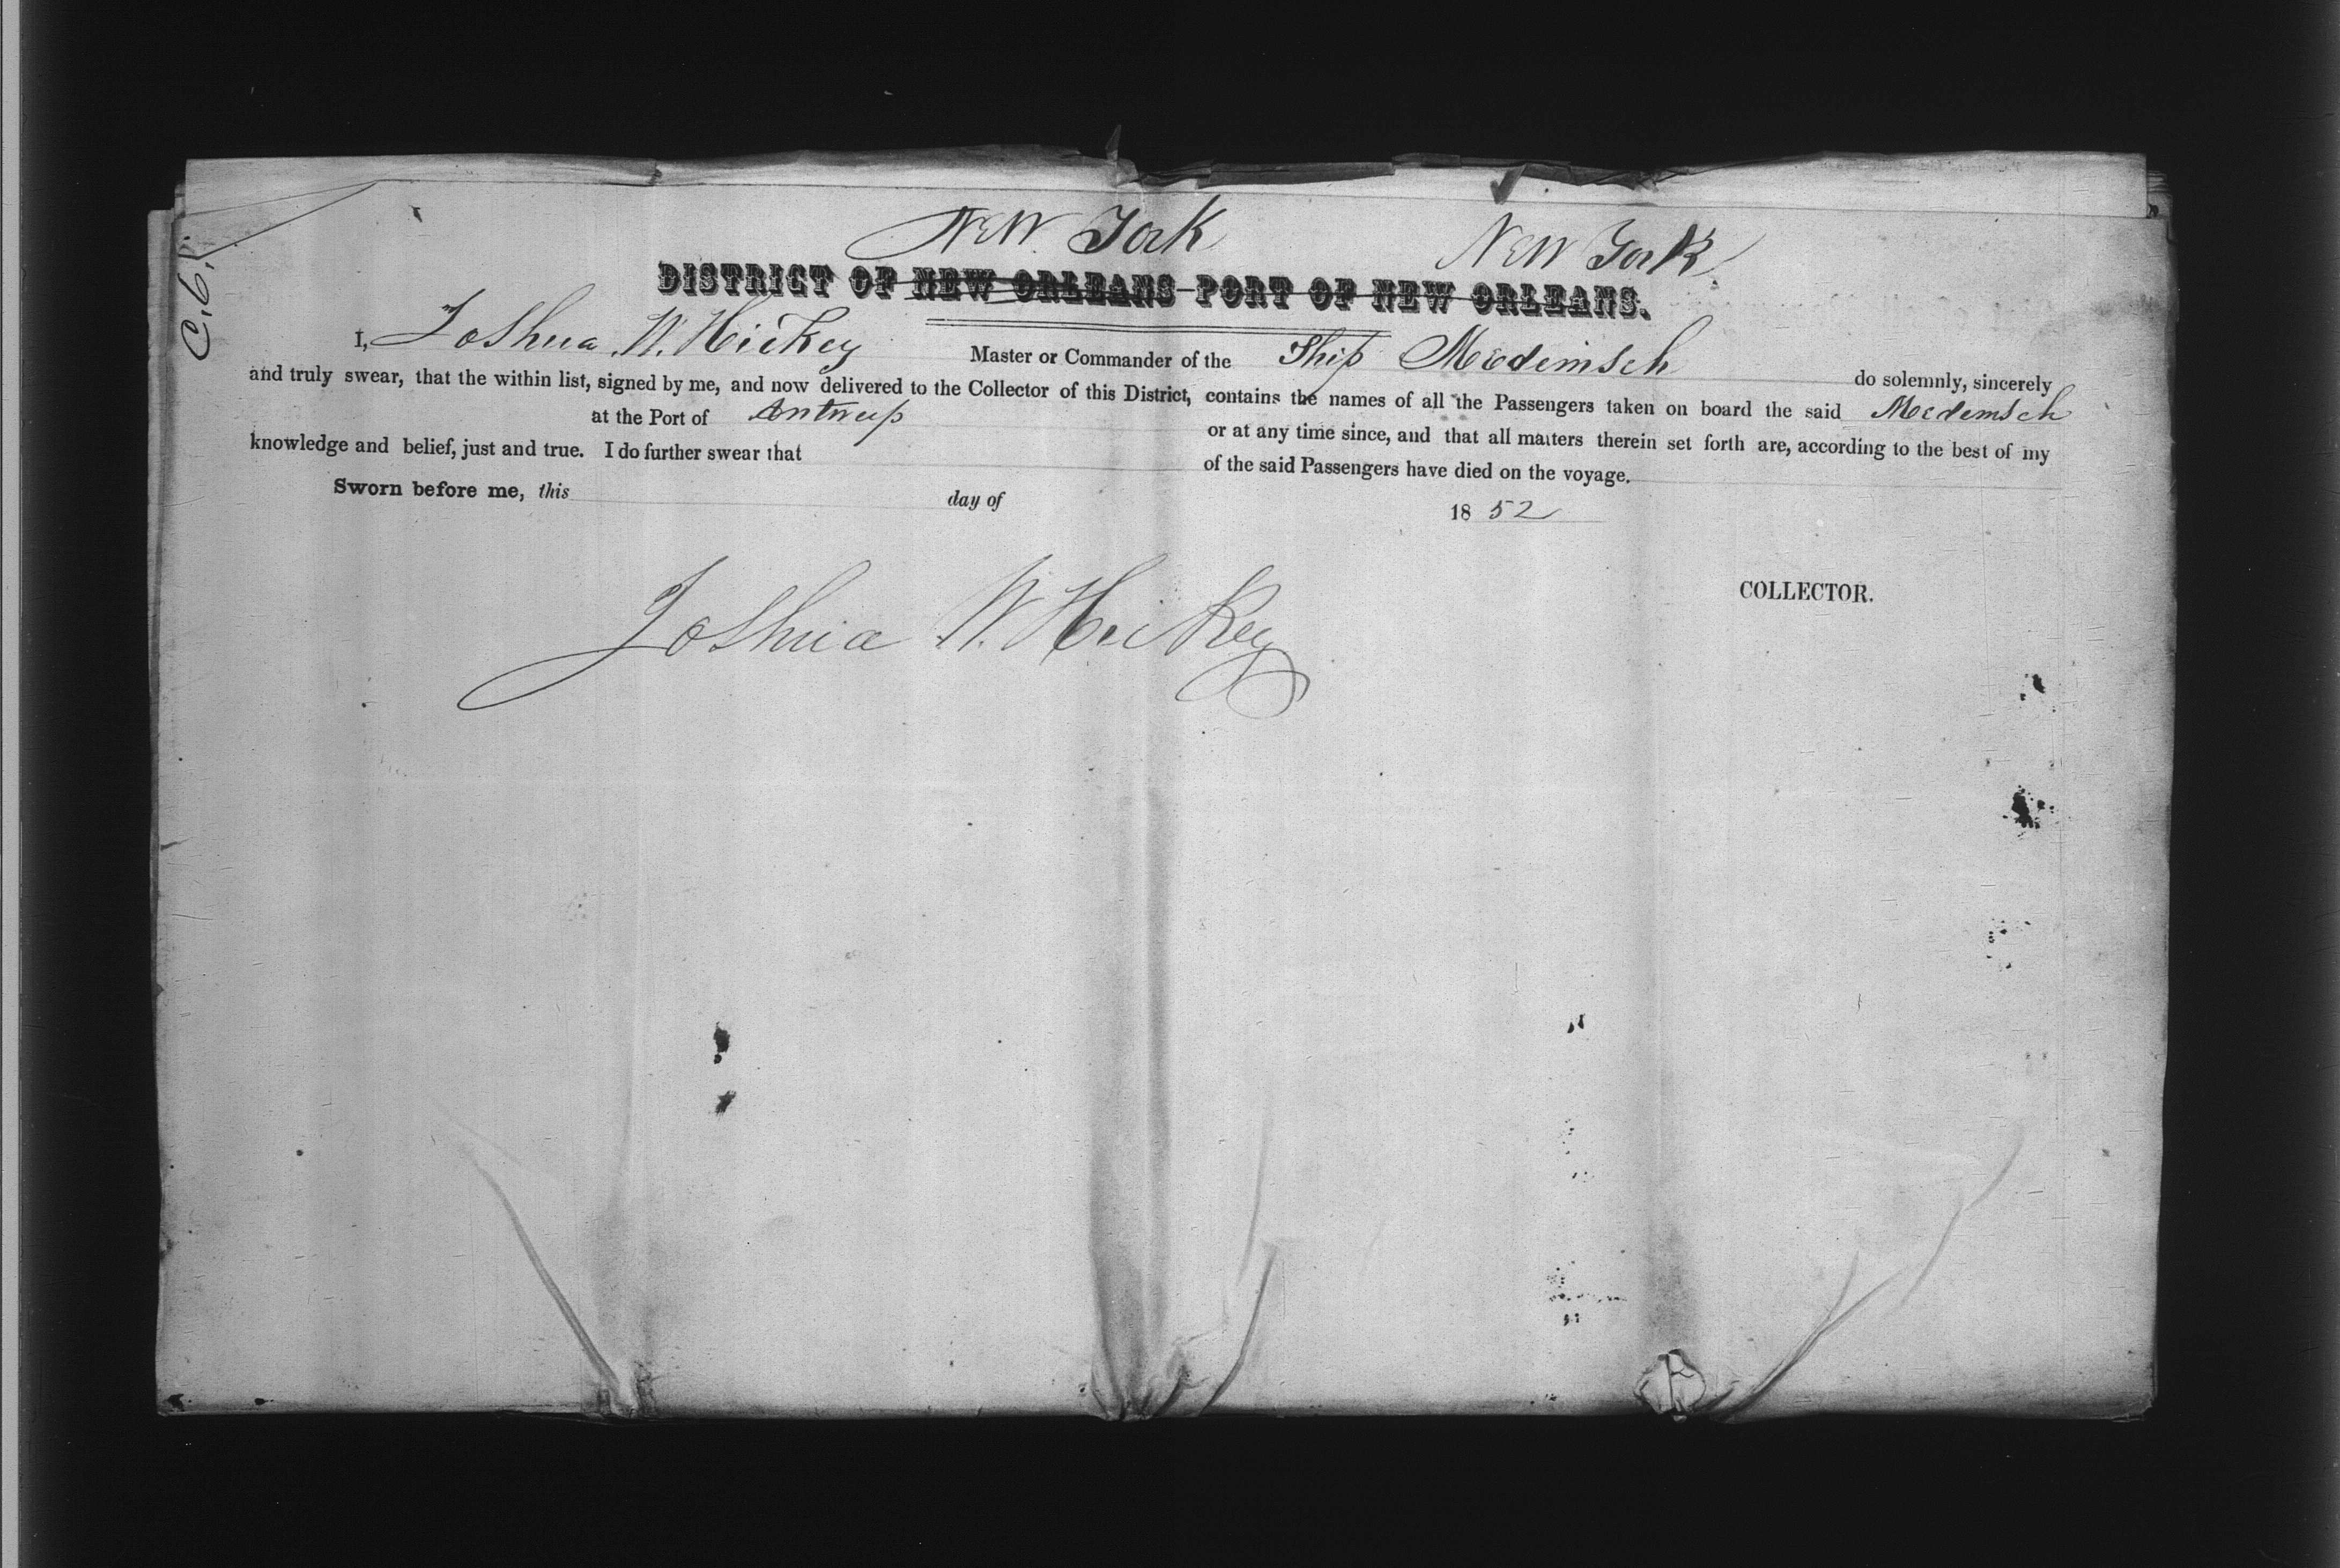 New York New York
DISTRICT OF NEW ORLEANS—PORT OF NEW ORLEANS.
I, Joshua W. Hickey Master or Commander of the Ship Medemsch do solemnly, sincerely
and truly swear, that the within list, signed by me, and now delivered to the Collector of this District, contains the names of all the Passengers taken on board the said Medemsch
at the Port of Antwerp or at any time since, and that all matters therein set forth are, according to the best of my
knowledge and belief, just and true. I do further swear that of the said Passengers have died on the voyage.
Sworn before me, this day of 1852
COLLECTOR.
Joshua W. Hickey